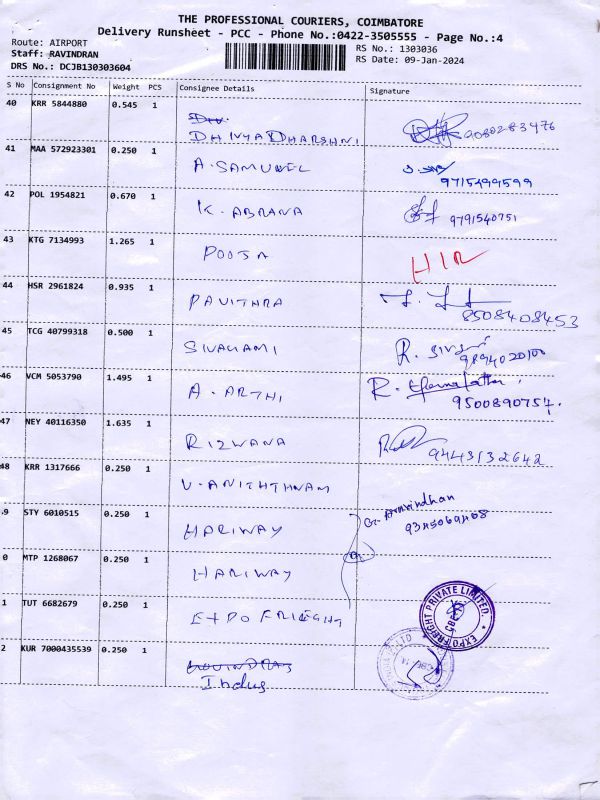 THE PROFESSIONAL COURIERS, COIMBATORE
Delivery Runsheet - PCC - Phone No.:0422-3505555 - Page No.:4
Route: AIRPORT
Staff: RAVINDRAN
DRS No.: DCJB130303604
RS No.: 1303036
RS Date: 09-Jan-2024
S No Consignment No Weight PCS Consignee Details Signature
40 KRR 5844880 0.545 1
DHIVYADHARSHNI 9080283476
41 MAA 572923301 0.250 1
A. SAMUVEL
9715499599
42 POL 1954821 0.670 1
K. ABRANA 9791540751
43 KTG 7134993 1.265 1
POOJA HIR
44 HSR 2961824 0.935 1
PAVITHRA
8508408453
45 TCG 40799318 0.500 1
SIVAGAMI R.
9894020100
46 VCM 5053790 1.495 1
A. ARTHI R.
9500890757.
47 NEY 40116350 1.635 1
RIZWANA 9443132642
48 KRR 1317666 0.250 1
V. ANITHTHNAM
9 STY 6010515 0.250 1
G. Aravindhan
9345069408
HARIWAY
0 MTP 1268067 0.250 1
HARIWAY
1 TUT 6682679 0.250 1
EXPO FRIEGHT
EXPO FREIGHT PRIVATE LIMITED.
2 KUR 7000435539 0.250 1
GOVINDRAJ
Indus